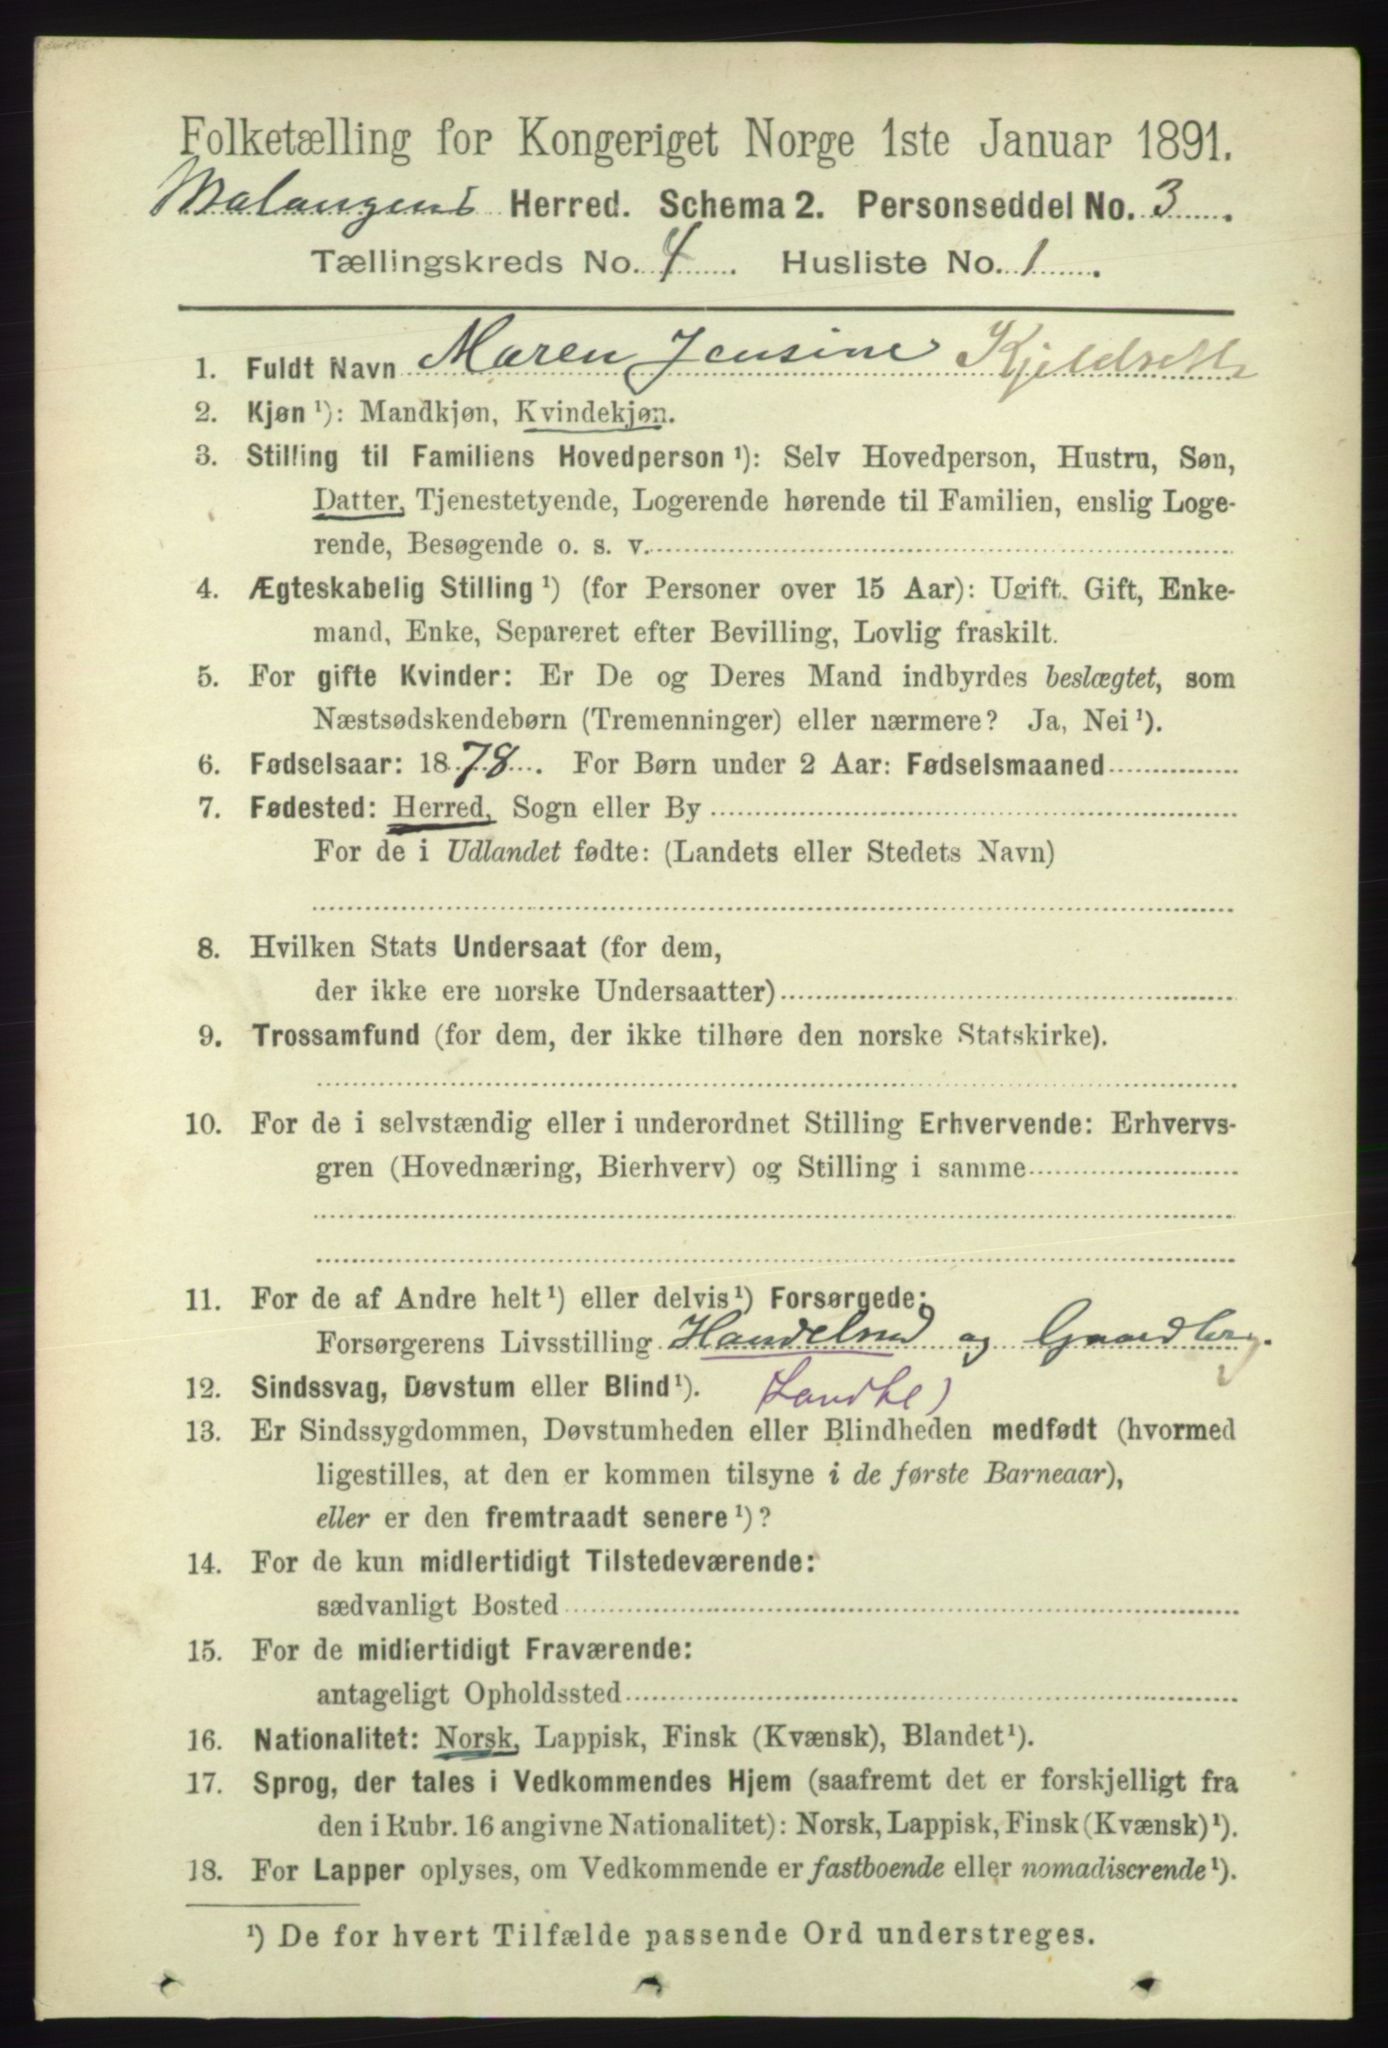 Folketælling for Kongeriget Norge 1ste Januar 1891.
Malangens Herred. Schema 2. Personseddel No. 3.
Tællingskreds No. 4. Husliste No. 1.
1. Fuldt Navn Maren Jensine
2. Kjøn ¹): Mandkjøn, Kvindekjøn.
3. Stilling til Familiens Hovedperson ¹): Selv Hovedperson, Hustru, Søn,
Datter, Tjenestetyende, Logerende hørende til Familien, enslig Loge-
rende, Besøgende o. s. v.
4. Ægteskabelig Stilling ¹) (for Personer over 15 Aar): Ugift, Gift, Enke-
mand, Enke, Separeret efter Bevilling, Lovlig fraskilt.
5. For gifte Kvinder: Er De og Deres Mand indbyrdes beslægtet, som
Næstsødskendebørn (Tremenninger) eller nærmere? Ja, Nei ¹).
6. Fødselsaar: 1878. For Børn under 2 Aar: Fødselsmaaned
7. Fødested: Herred, Sogn eller By
For de i Udlandet fødte: (Landets eller Stedets Navn)
8. Hvilken Stats Undersaat (for dem,
der ikke ere norske Undersaatter)
9. Trossamfund (for dem, der ikke tilhøre den norske Statskirke).
10. For de i selvstændig eller i underordnet Stilling Erhvervende: Erhvervs-
gren (Hovednæring, Bierhverv) og Stilling i samme
11. For de af Andre helt ¹) eller delvis ¹) Forsørgede:
Forsørgerens Livsstilling og
12. Sindssvag, Døvstum eller Blind ¹).
13. Er Sindssygdommen, Døvstumheden eller Blindheden medfødt (hvormed
ligestilles, at den er kommen tilsyne i de første Barneaar),
eller er den fremtraadt senere ¹)?
14. For de kun midlertidigt Tilstedeværende:
sædvanligt Bosted
15. For de midlertidigt Fraværende:
antageligt Opholdssted
16. Nationalitet: Norsk, Lappisk, Finsk (Kvænsk), Blandet ¹).
17. Sprog, der tales i Vedkommendes Hjem (saafremt det er forskjelligt fra
den i Rubr. 16 angivne Nationalitet): Norsk, Lappisk, Finsk (Kvænsk) ¹).
18. For Lapper oplyses, om Vedkommende er fastboende eller nomadiserende ¹).
¹) De for hvert Tilfælde passende Ord understreges.